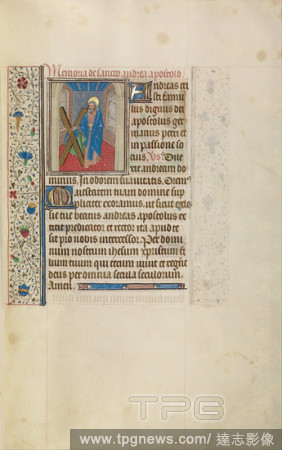 Memoria de sancto andrea apostolo
Andreas cri
sti famu
lus dignus dei
apostolus ger
manus petri et
in passione so
cius. Vs. Dile
xit andream do
minus. In odorem suavitatis. Orem
Maiestatem tuam domine sup
pliciter exoramus. ut sicut eccle
sie tue beatus andreas apostolus ex
titit predicator et rector ita apud te
sit pro nobis intercessor. Per domi
num nostrum ihesum xpristum fi
lium tuum qui tecum vivit et regnat
deus per omnia secula seculorum
Amen.
TPG
www.tpgnews.com/ 達志影像